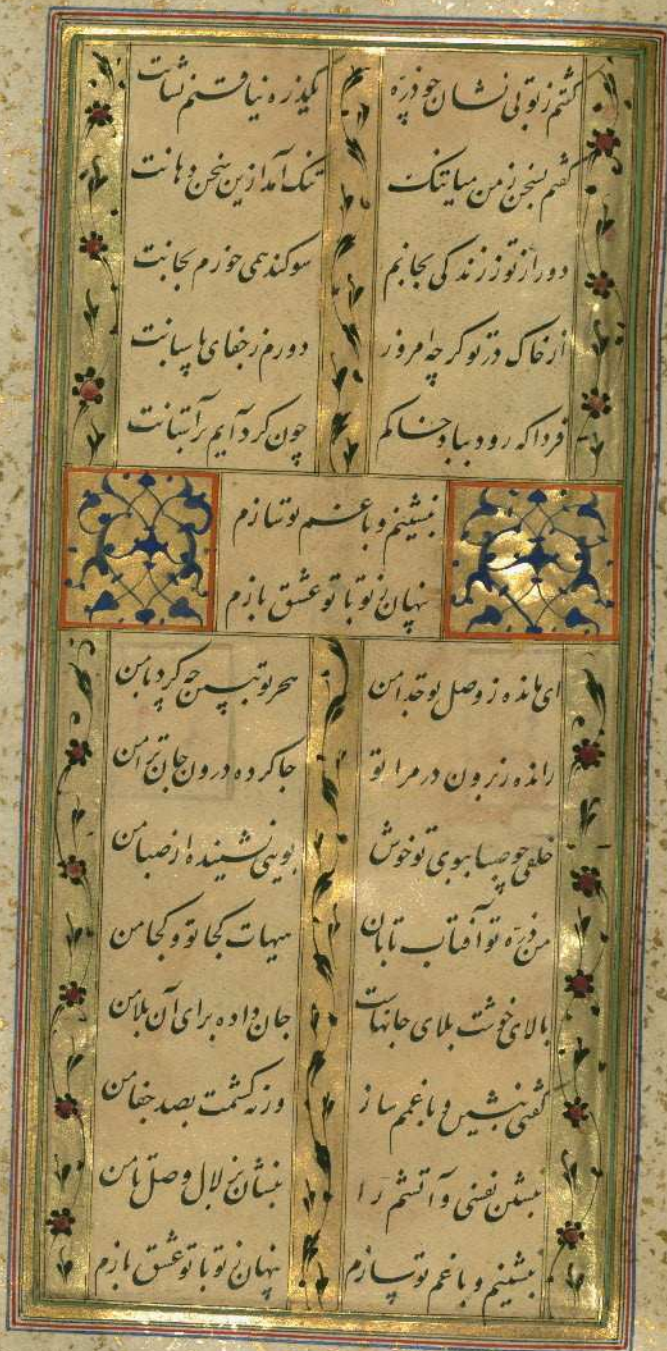 گشتم ز تو بی نشان چو ذرّه یکذره نیافتم نشانت
گفتم بسخن ز من میا تنک تنک آمد ازین سخن دهانت
دور از تو ز زندکی بجانم سوکند همی خورم بجانت
از خاک در تو کر چه امروز دورم ز جفای پاسبانت
فردا که رود بباد خاکم چون کرد آیم بر آستانت
بنشینم و با غم تو سازم
پنهان ز تو با تو عشق بازم
ای مانده ز وصل تو جدا من هجر تو ببین چه کرد با من
رانده ز برون در مرا تو جا کرده درون جان ترا من
خلقی چو صبا ببوی تو خوش بویی نشنیده از صبا من
من ذرّه تو آفتاب تابان هیهات کجا تو و کجا من
بالای خوشت بلای جانهاست جان داده برای آن بلا من
گفتی بنشین و با غمم ساز ورنه کشمت بصد جفا من
بنشین نفسی و آتشم را بنشان ز زلال وصل یا من
بنشینم و با غم تو سازم پنهان ز تو با تو عشق بازم